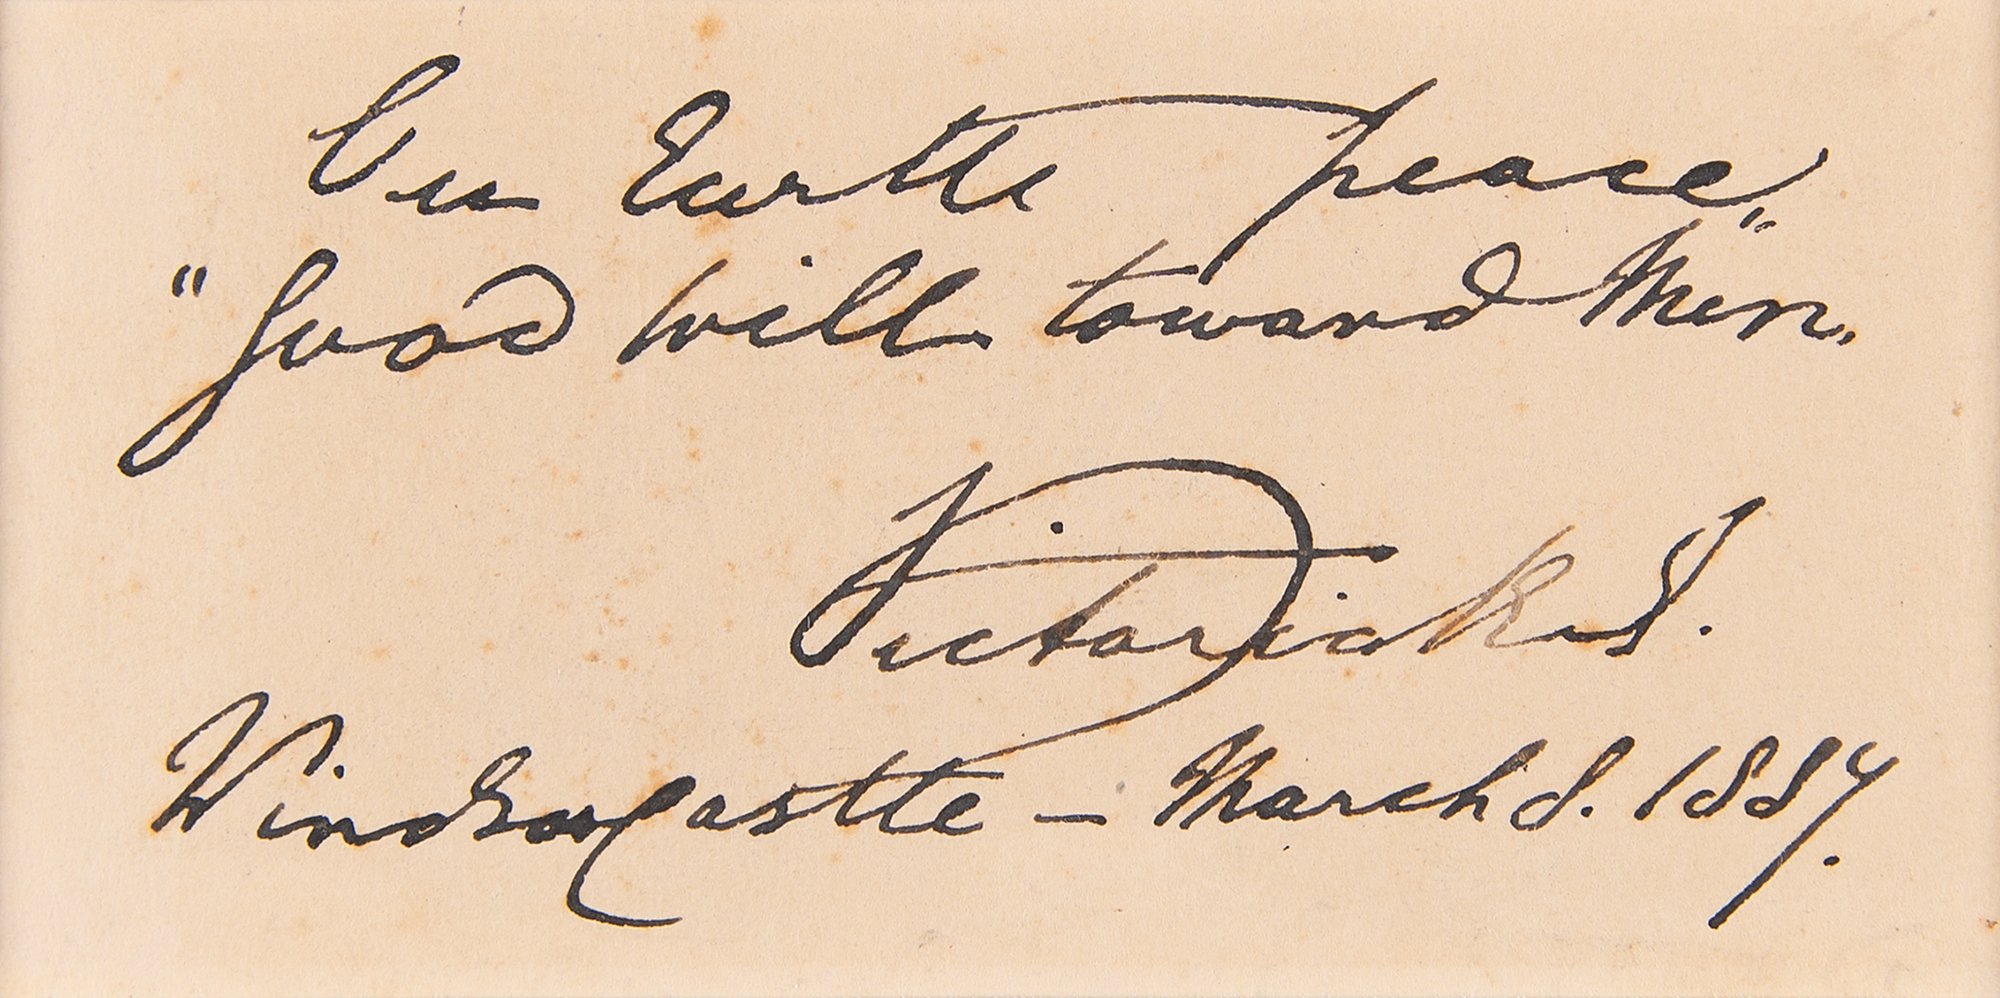 On Earth peace
"good will toward Men."
Victoria R I.
Windsor Castle – March 8. 1887.